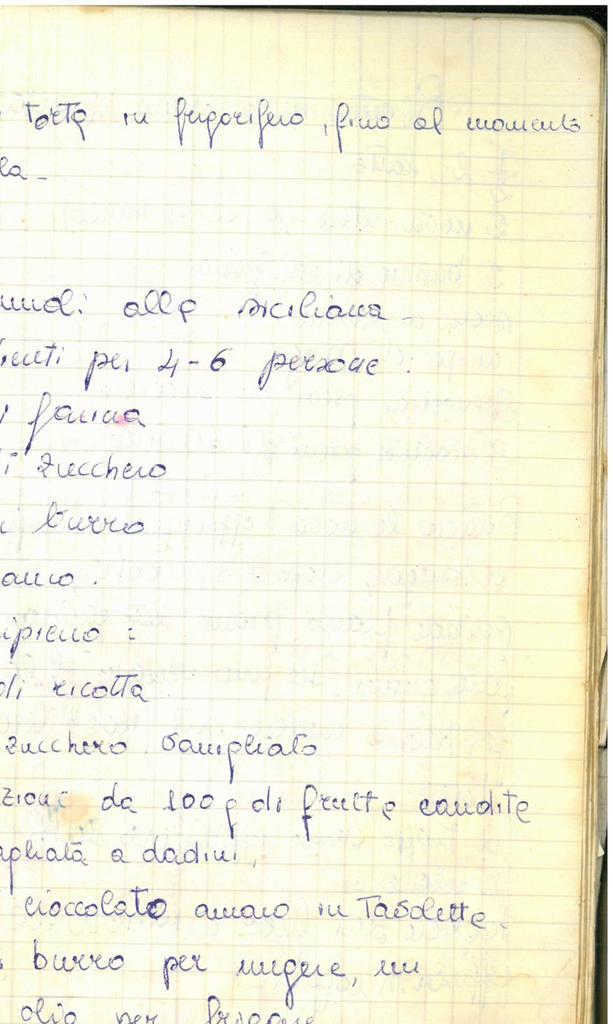 torta in frigorifero, fino al momento
la -
alla siciliana -
ienti per 4-6 persone.
i farina
i zucchero
i burro
ano.
ipieno:
di ricotta
zucchero vanigliato
zione da 100 g di frutta candita
agliata a dadini,
cioccolato amaro in tavolette.
burro per ungere, un
olio per friggere